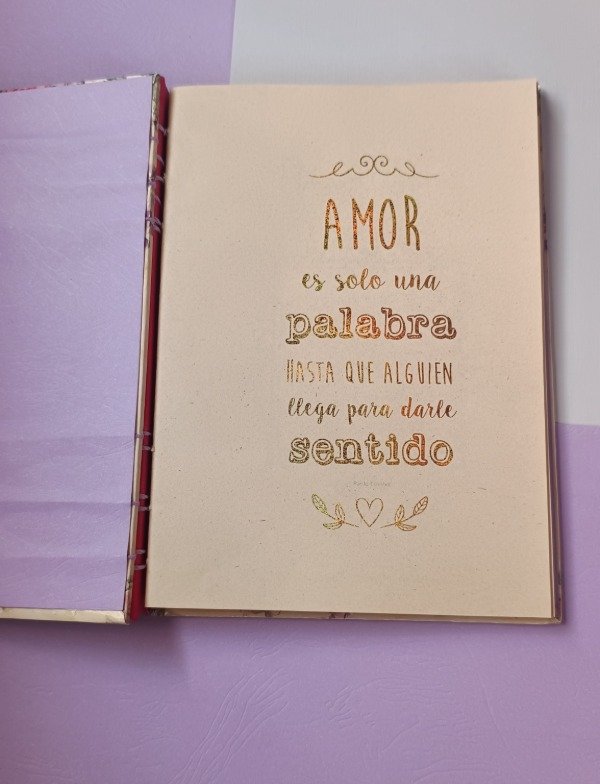 AMOR
es solo una
palabra
HASTA QUE ALGUIEN
llega para darle
sentido